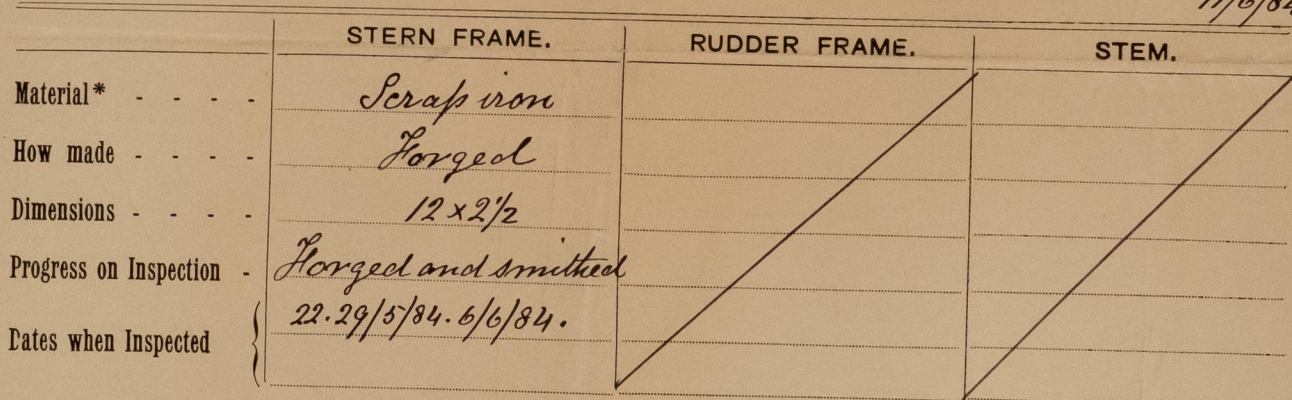 11/6/84
STERN FRAME. RUDDER FRAME. STEM.
Material* - - - - Scrap iron
How made - - - - Forged
Dimensions - - - - 12 x 2 1/2
Progress on Inspection - Forged and smithed
Dates when Inspected 22. 29/5/84. 6/6/84.